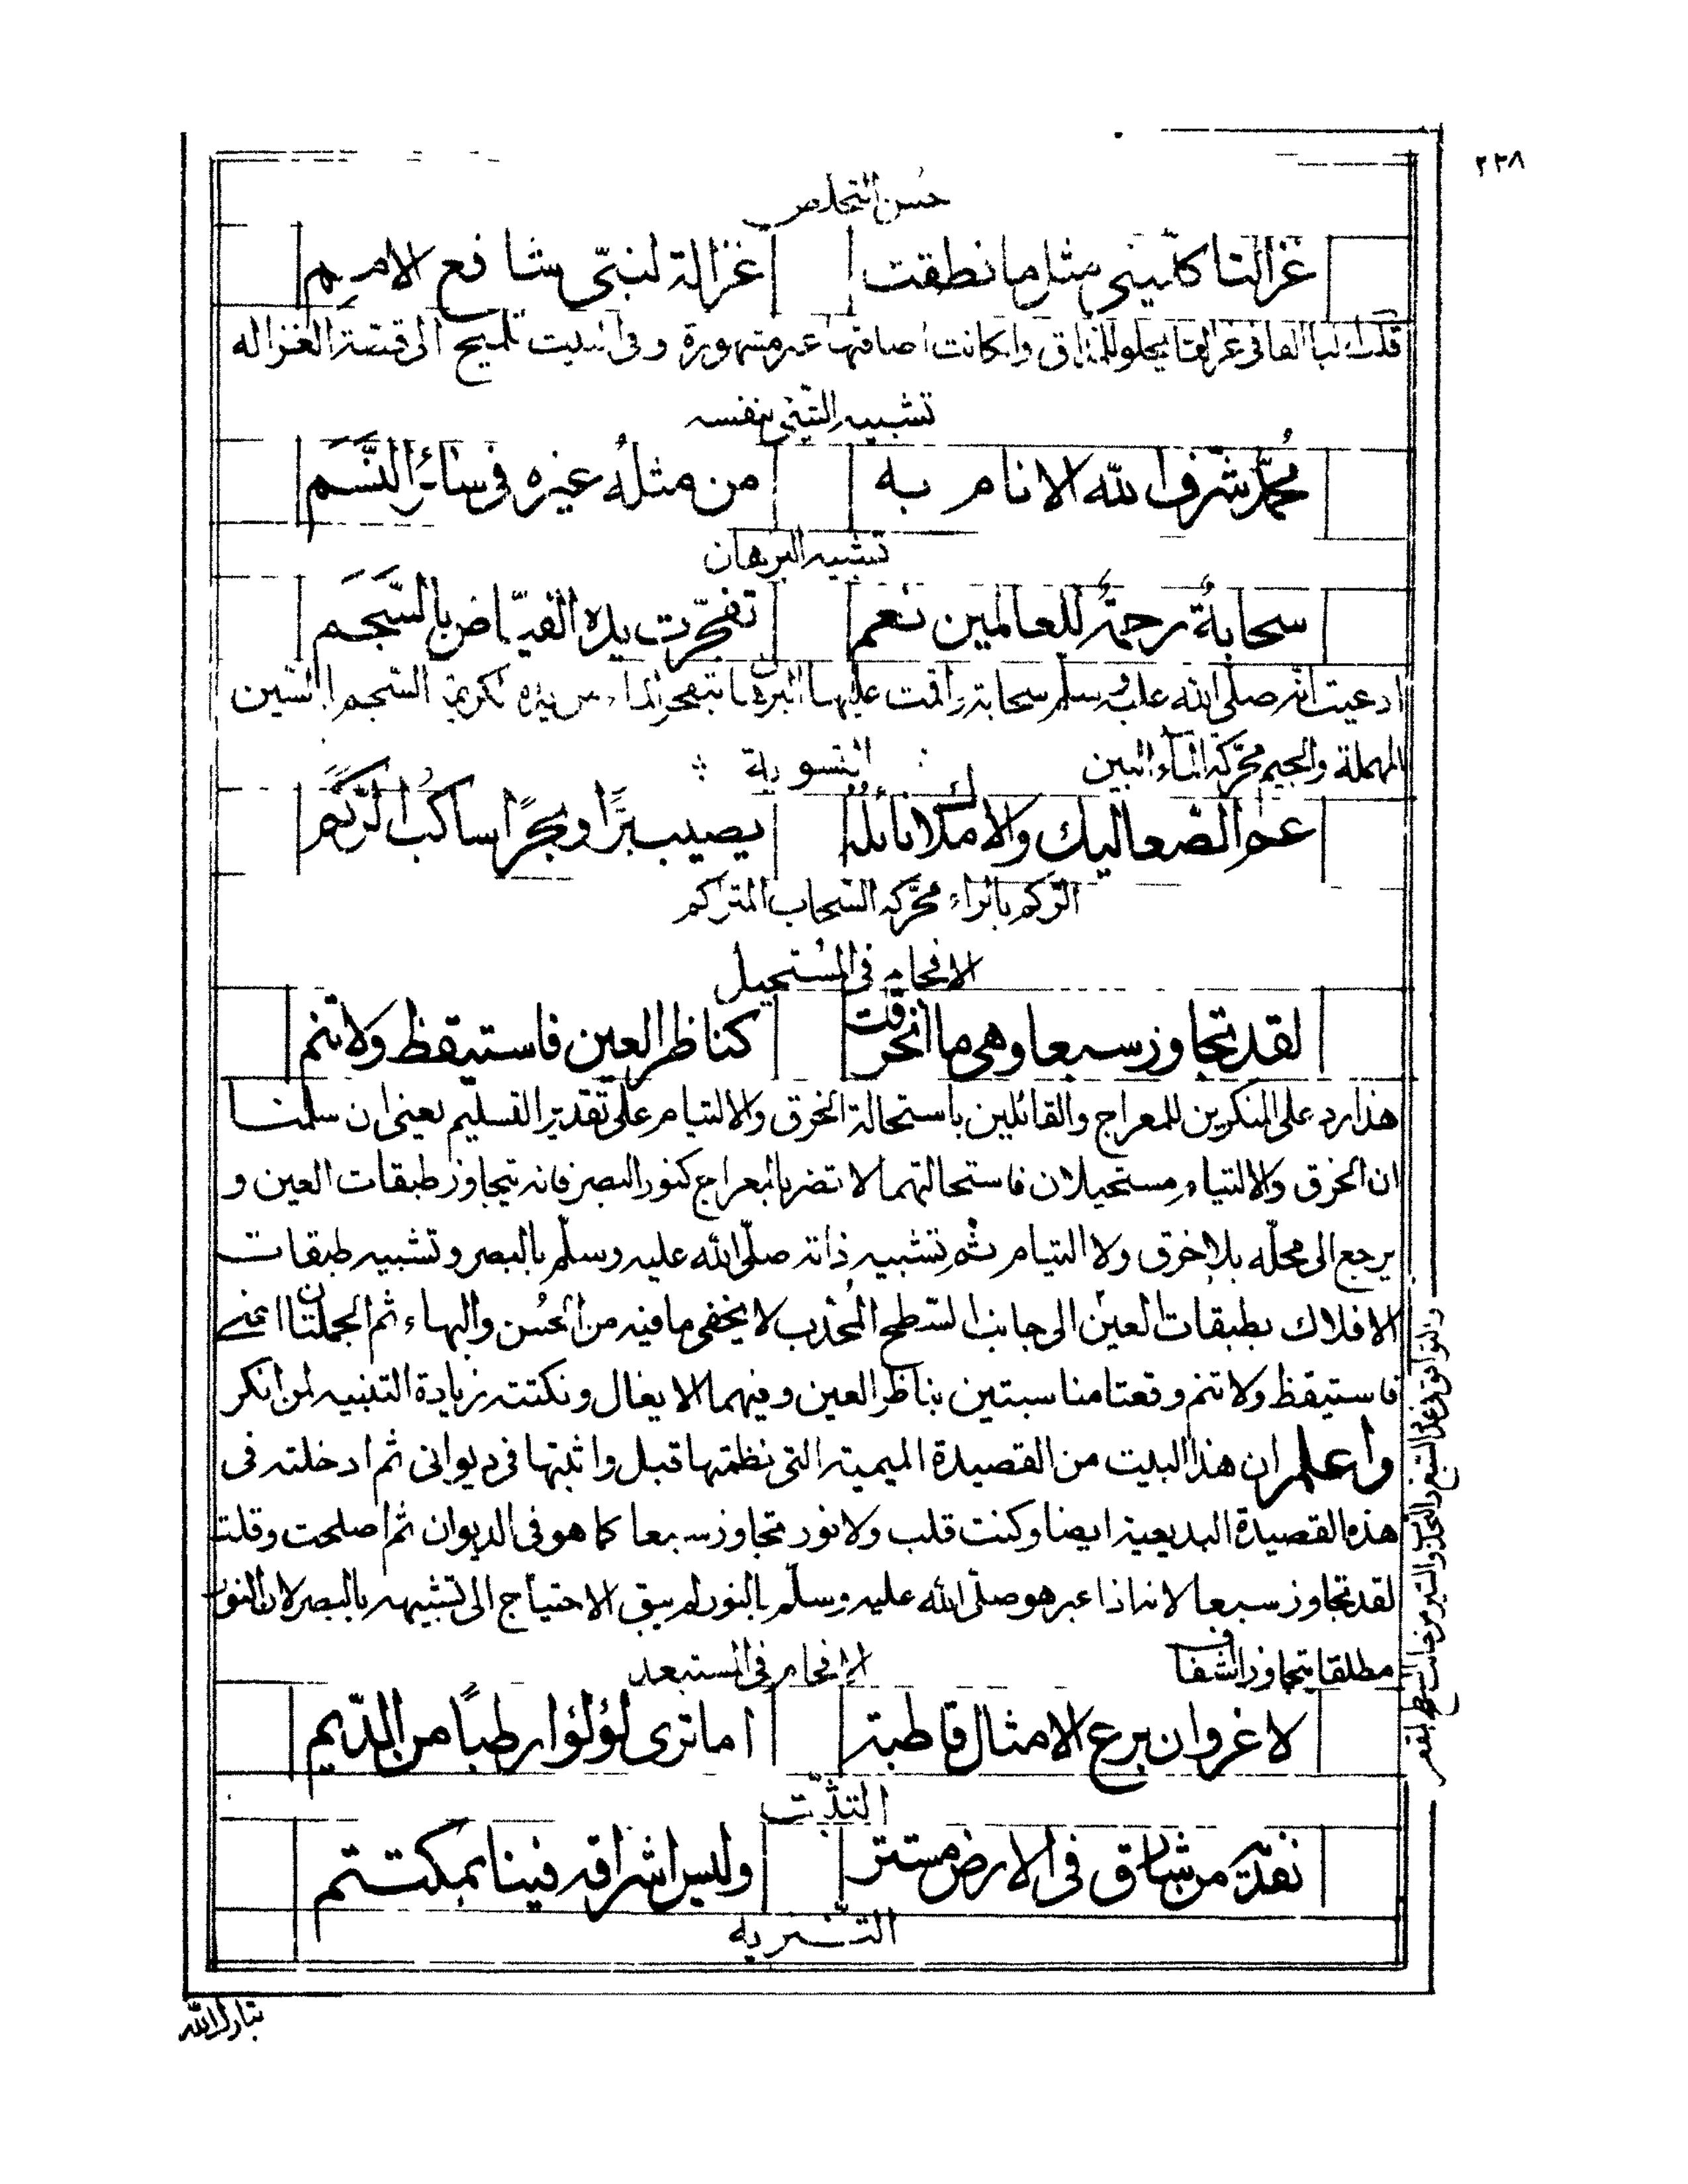 ٢٣٨
حُسن التخلص
غزالنا كلّميني مثل ما نطقت غزالة لنبيّ شافع الامم
وفي البيت تلميح الى قصّة الغزاله
تشبيه الشيئ بنفسه
محمّدٌ شرّف اللّه الانام به من مثلُه غيره في سائر النَّسَم
تشبيه البرهان
سحابةٌ رحمةٌ للعالمين نعم تفجّرت يده الفيّاض بالسَّجَم
ادعيت انه صلى الله عليه وسلم سحابة واقمت عليها البرهان بتفجر الماء من يده الكريمة السّجم بالسّين
المهملة والجيم محرّكة الماء التسوية
عم الصّعاليك والاملاك نائلُهُ يصيب برًّا وبحرًا ساكبُ الرَّكَم
الرّكم بالراء محرّكه السّحاب المتراكم
الافحام في المُستحيل
لقد تجاوز سبعا وهي ما انخرقت كناظر العين فاستيقظ ولا تنم
هذا رد على المنكرين للمعراج والقائلين باستحالة الخرق والالتيام على تقدير التسليم يعني ان سلمنا
ان الخرق والالتيام مستحيلان فاستحالتهما لا تضر بالمعراج كنور البصر فانه يتجاوز طبقات العين و
يرجع الى محلّه بلا خرق ولا التيام ثم تشبيه ذاته صلّى الله عليه وسلّم بالبصر وتشبيه طبقات
الافلاك بطبقات العين الى جانب السّطح المُحدّب لا يخفى ما فيه من الحُسن والبهاء ثم الجملتان اعني
فاستيقظ ولا تنم وقعتا مناسبتين بناظر العين وفيهما الايغال ونكتته زيادة التنبيه لمن انكر
واعلم ان هذا البيت من القصيدة الميمية التي نظمتها قبل واثبتها في ديواني ثم ادخلته في
هذه القصيدة البديعية ايضا وكنت قلت ولا نور تجاوز سبعا كما هو في الديوان ثم اصلحت وقلت
لقد تجاوز سبعا لانه اذا عبر هو صلّى الله عليه وسلّم بالنور لم يبق الاحتياج الى تشبيهه بالبصر لان النور
مطلقا يتجاوز الشفاف الافحام في المستبعد
لا غرو ان برع الامثال قاطبة اما ترى لؤلؤا رطبًا من الدّيم
نفديه من شارق في الارض مستتر وليس اشراقه فينا بمكتتم
التّنزيه
تبارك الله